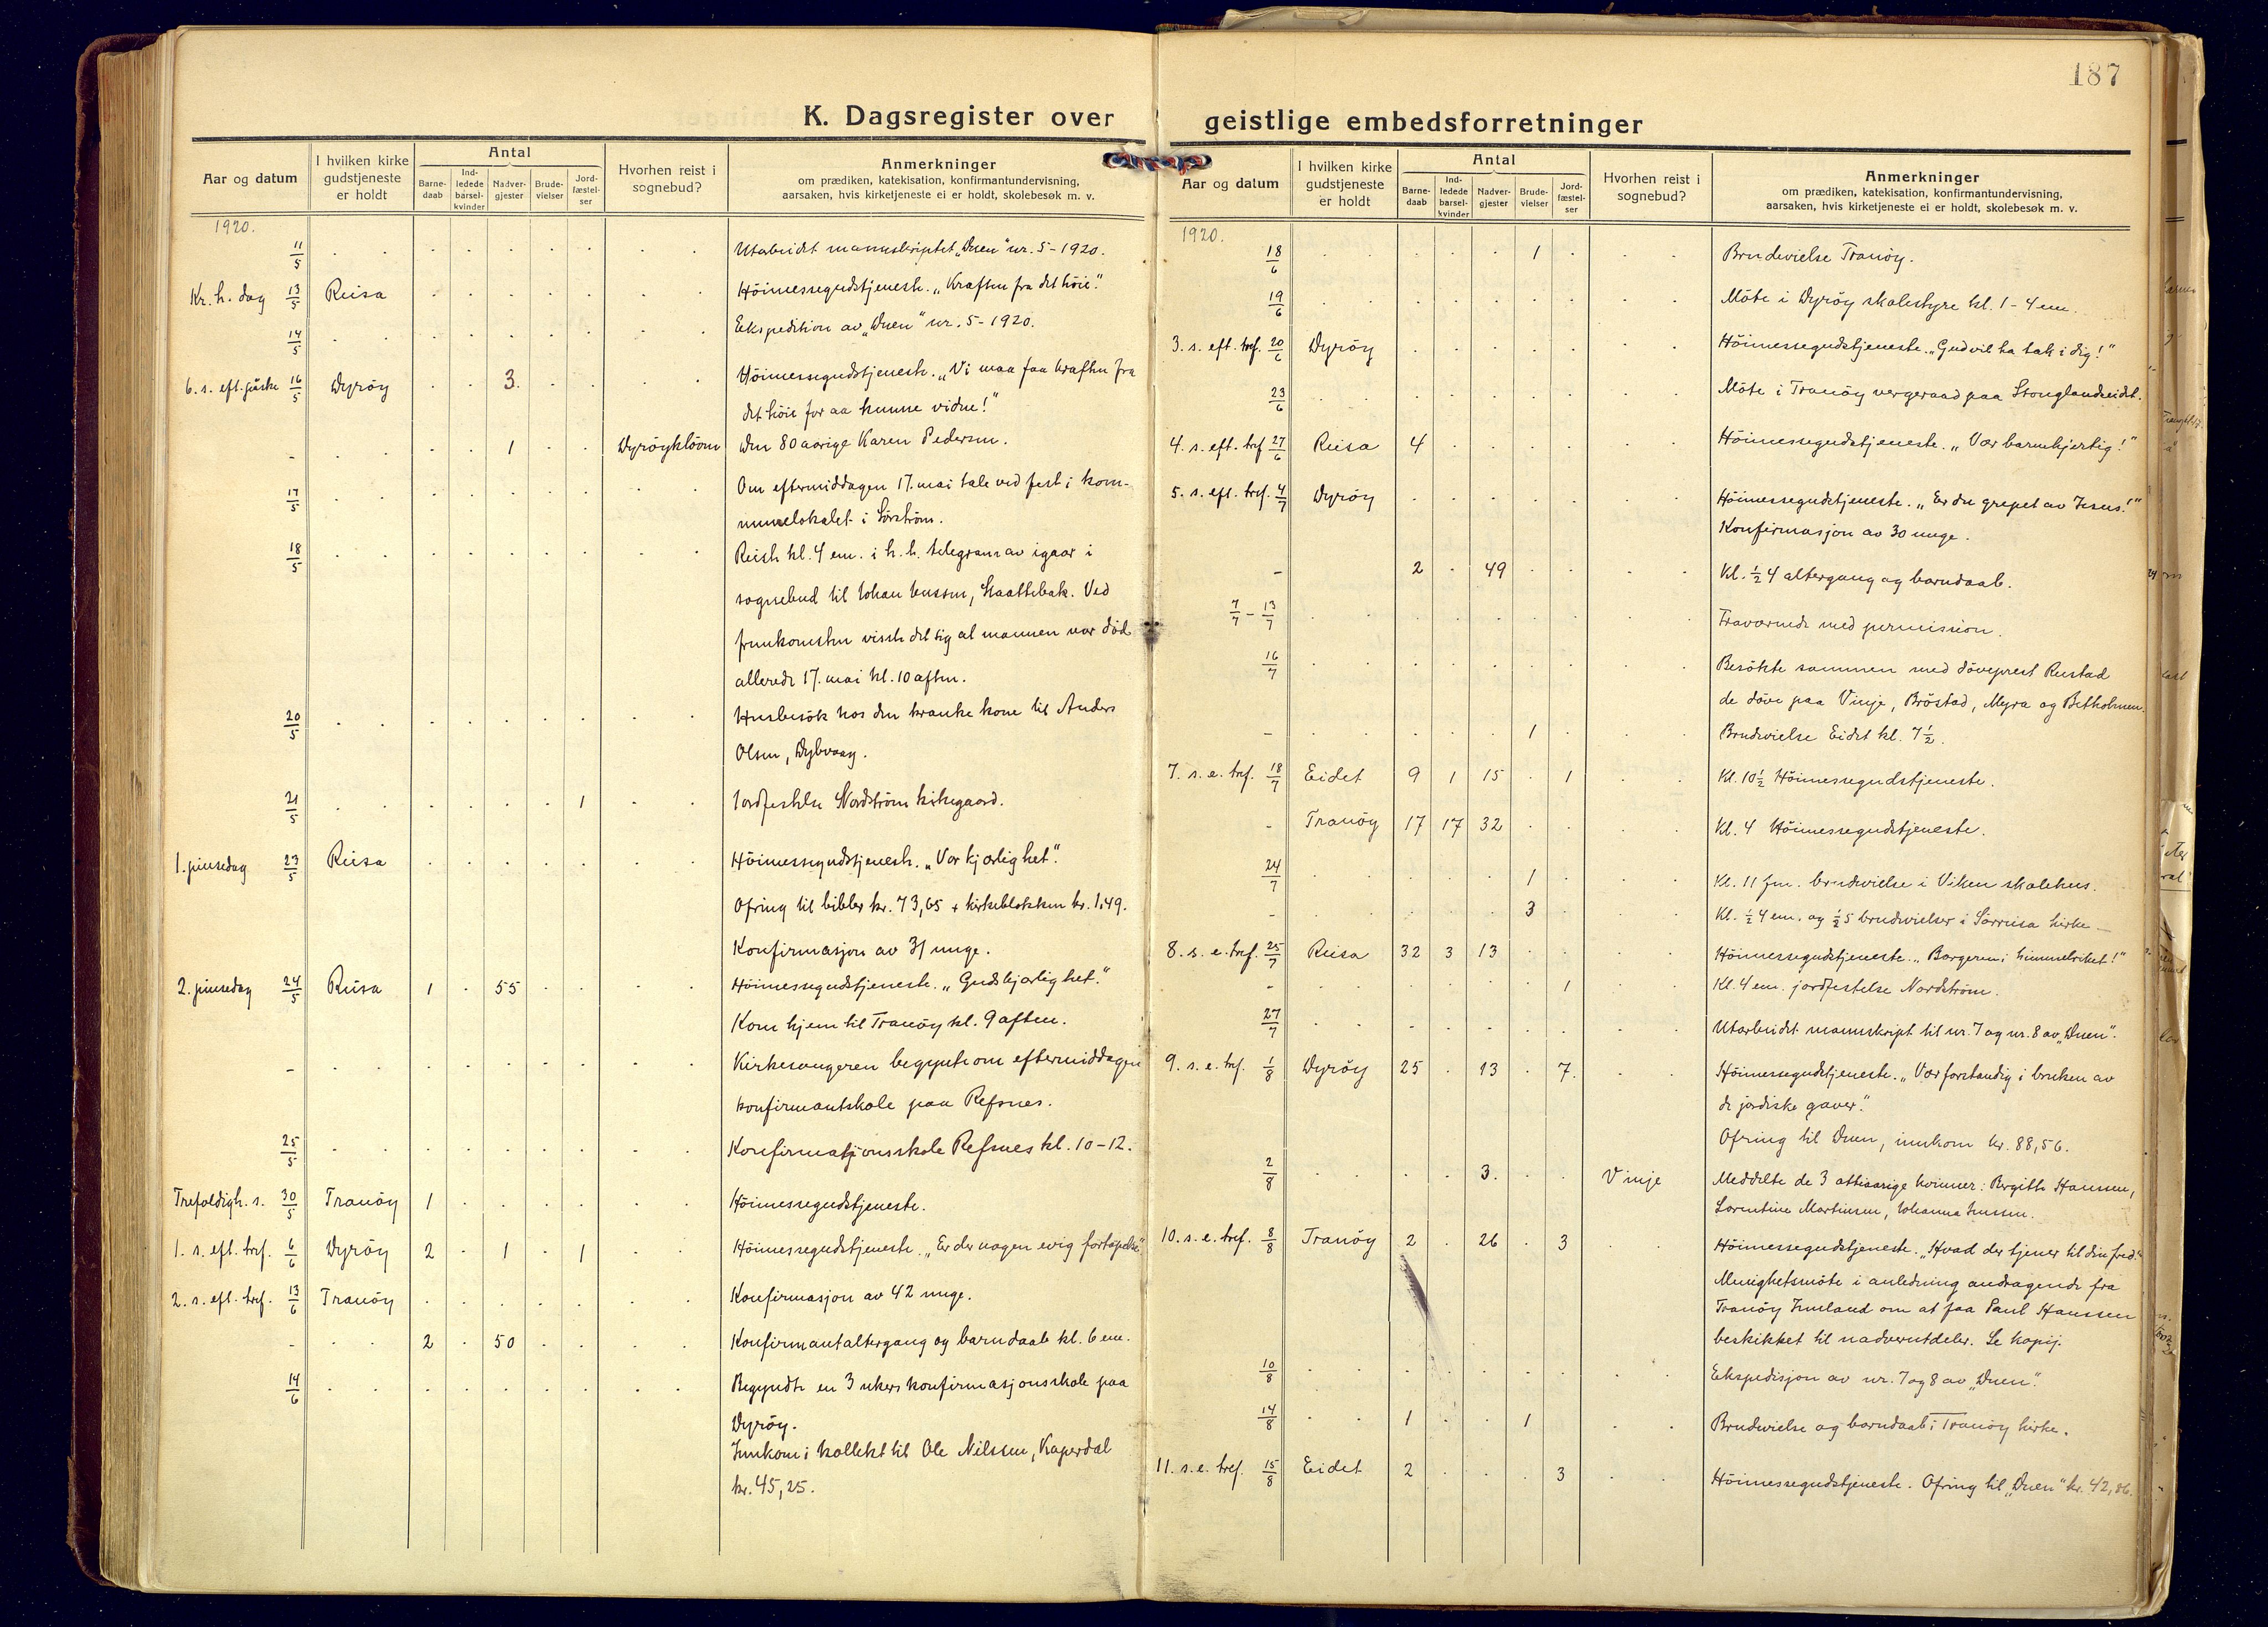 187
K. Dagsregister over
Aar og datum
I hvilken kirke gudstjeneste er holdt
Antal
Barne-daab
Ind-ledede barsel-kvinder
Nadver-gjester
Brude-vielser
Jord-fæstel-ser
Hvorhen reist i sognebud?
Anmerkninger
om prædiken, katekisation, konfirmantundervisning,
aarsaken, hvis kirketjeneste ei er holdt, skolebesøk m. v.
1920.
11/5 Utarbeidet manuskriptet „Duen" nr. 5-1920.
Kr. h. dag 13/5 Reisa Höimessegudstjeneste. „Kraften fra det höie."
14/5 Ekspedition av „Duen" nr. 5-1920.
6. s. eft. påske 16/5 Dyröy 3. Höimessegudstjeneste. „Vi maa faa kraften fra
det höie for aa kunne vidne!"
- 1 Dyröyklöven Den 80 aarige Karen Pedersen.
17/5 Om eftermiddagen 17. mai tale ved fest i kom-
munelokalet i Sörström.
18/5 Reiste kl. 4 em. i h. h. telegram av igaar i
sognebud til Johan Jenssen, Skaattebak. Ved
fremkomsten viste det sig at mannen var död
allerede 17. mai kl. 10 aften.
20/5 Husbesök hos den kranke kone til Anders
Olsen, Dybvaag.
21/5 1 Jordfestelse Nordström kirkegaard.
1. pinsedag 23/5 Reisa Höimessegudstjeneste. „Vor kjærlighet."
Ofring til bibler kr. 73,65 + kirkeblokken kr. 1,49.
Konfirmasjon av 31 unge.
2. pinsedag 24/5 Reisa 1 55 Höimessegudstjeneste. „Guds kjærlighet."
Kom hjem til Tranöy kl. 9 aften.
- Kirkesangeren begynte om eftermiddagen
konfirmantskole paa Refsnes.
25/5 Konfirmasjonsskole Refsnes kl. 10-12.
Trefoldigh. s. 30/5 Tranöy 1 Höimessegudstjeneste.
1. s. eft. tref. 6/6 Dyröy 2 1 1 Höimessegudstjeneste. „Er der nogen evig fortapelse"
2. s. eft. tref. 13/6 Tranöy Konfirmasjon av 42 unge.
- 2 50 Konfirmantaltergang og barnedaab kl. 6 em.
14/6 Begyndte en 3 ukers konfirmasjonsskole paa
Dyröy.
Innkom i kollekt til Ole Nilssen, Kaperdal
kr. 45,25.
geistlige embedsforretninger
Aar og datum
I hvilken kirke gudstjeneste er holdt
Antal
Barne-daab
Ind-ledede barsel-kvinder
Nadver-gjester
Brude-vielser
Jord-fæstel-ser
Hvorhen reist i sognebud?
Anmerkninger
om prædiken, katekisation, konfirmantundervisning,
aarsaken, hvis kirketjeneste ei er holdt, skolebesøk m. v.
1920.
18/6 1 Brudevielse Tranöy.
19/6 Möte i Dyröy skolestyre kl. 1-4 em.
3. s. eft. tref. 20/6 Dyröy Höimessegudstjeneste. „Gud vil ha tak i dig!"
23/6 Möte i Tranöy vergeraad paa Stonglandseidet.
4. s. eft. tref 27/6 Reisa 4 Höimessegudstjeneste. „Vær barmhjertig!"
5. s. eft. tref. 4/7 Dyröy Höimessegudstjeneste. „Er du grepet av Jesus!"
Konfirmasjon av 30 unge.
- 2 49 Kl. ½ 4 altergang og barndaab.
7/7 - 13/7 Fraværende med permission.
16/7 Besökte sammen med döveprest Rustad
de döve paa Vinje, Bröstad, Myra og Betholmen.
- 1 Brudevielse Eidet kl. 7½.
7. s. e. tref. 18/7 Eidet 9 1 15 1 Kl. 10½ Höimessegudstjeneste.
- Tranöy 17 17 32 Kl. 4 Höimessegudstjeneste.
24/7 1 Kl. 11 fm. brudevielse i Viken skolehus.
- 3 Kl. ½ 4 em. og ½ 5 brudevielser i Sörreisa kirke
8. s. e. tref. 25/7 Reisa 32 3 13 Höimessegudstjeneste. „Borgeren i himmelriket!"
- 1 Kl. 4 em. jordfestelse Nordström.
27/7 Utarbeidet manuskript til nr. 7 og nr. 8 av „Duen".
9. s. e. tref. 1/8 Dyröy 25 13 7. Höimessegudstjeneste. „Vær forstandig i bruken av
de jordiske gaver."
Ofring til Duen, innkom kr. 88,56.
2/8 3. Vinje Meddelte de 3 ottiaarige kvinner: Bergitte Hanssen,
Lorentine Martinsen, Johanna Jenssen.
10. s. e. tref. 8/8 Tranöy 2 26 3 Höimessegudstjeneste. „Hvad der tjener til din fred."
Menighetsmöte i anledning andragende fra
Tranöy Innland om at faa Paul Hanssen
beskikket til nadverutdeler. Se kopij.
10/8 Ekspedisjon av nr. 7 og 8 av „Duen".
14/8 1 1 Brudevielse og barndaab i Tranöy kirke.
11. s. e. tref. 15/8 Eidet 2 3 Höimessegudstjeneste. Ofring til „Duen" kr. 42,86.